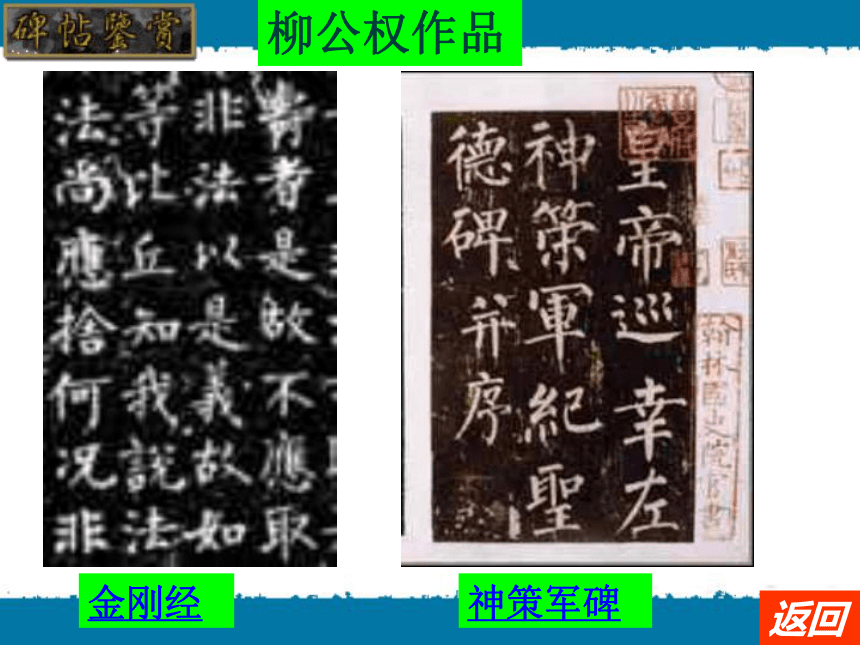 碑帖鑒赏
柳公权作品
壽者是故不應取
非法以是義故如
等比丘知我說法
法尚應捨何況非
皇帝巡幸左
神策軍紀聖
德碑并序
翰林國史院官書
金刚经
神策军碑
返回